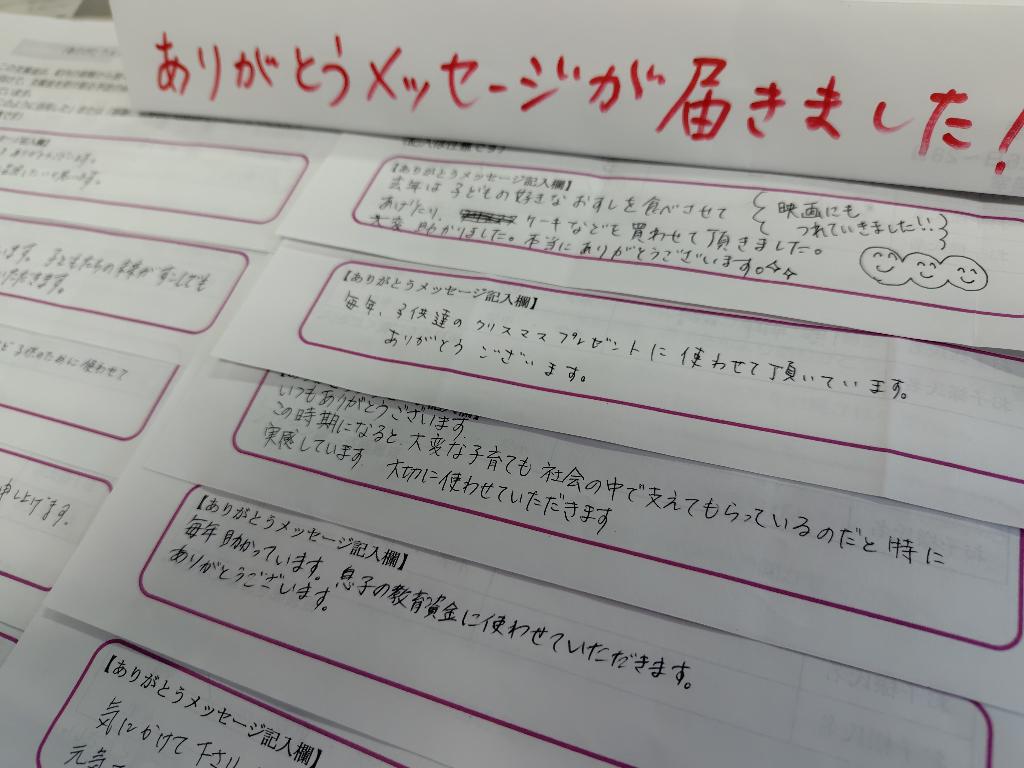 ありがとうメッセージが届きました!
【ありがとうメッセージ記入欄】
去年は子どもの好きなおすしを食べさせて
あげたり、ケーキなどを買わせて頂きました。
大変助かりました。本当にありがとうございます。
映画にも
つれていきました!!
【ありがとうメッセージ記入欄】
毎年、子供達のクリスマスプレゼントに使わせて頂いています。
ありがとうございます。
いつもありがとうございます
この時期になると、大変な子育ても社会の中で支えてもらっているのだと特に
実感しています 大切に使わせていただきます
【ありがとうメッセージ記入欄】
毎年助かっています。息子の教育資金に使わせていただきます。
ありがとうございます。
【ありがとうメッセージ記入欄】
気にかけて下さり
元気
ます。子どもたちの未来が少しでも
いただきます。
子供のために使わせて
申し上げます。